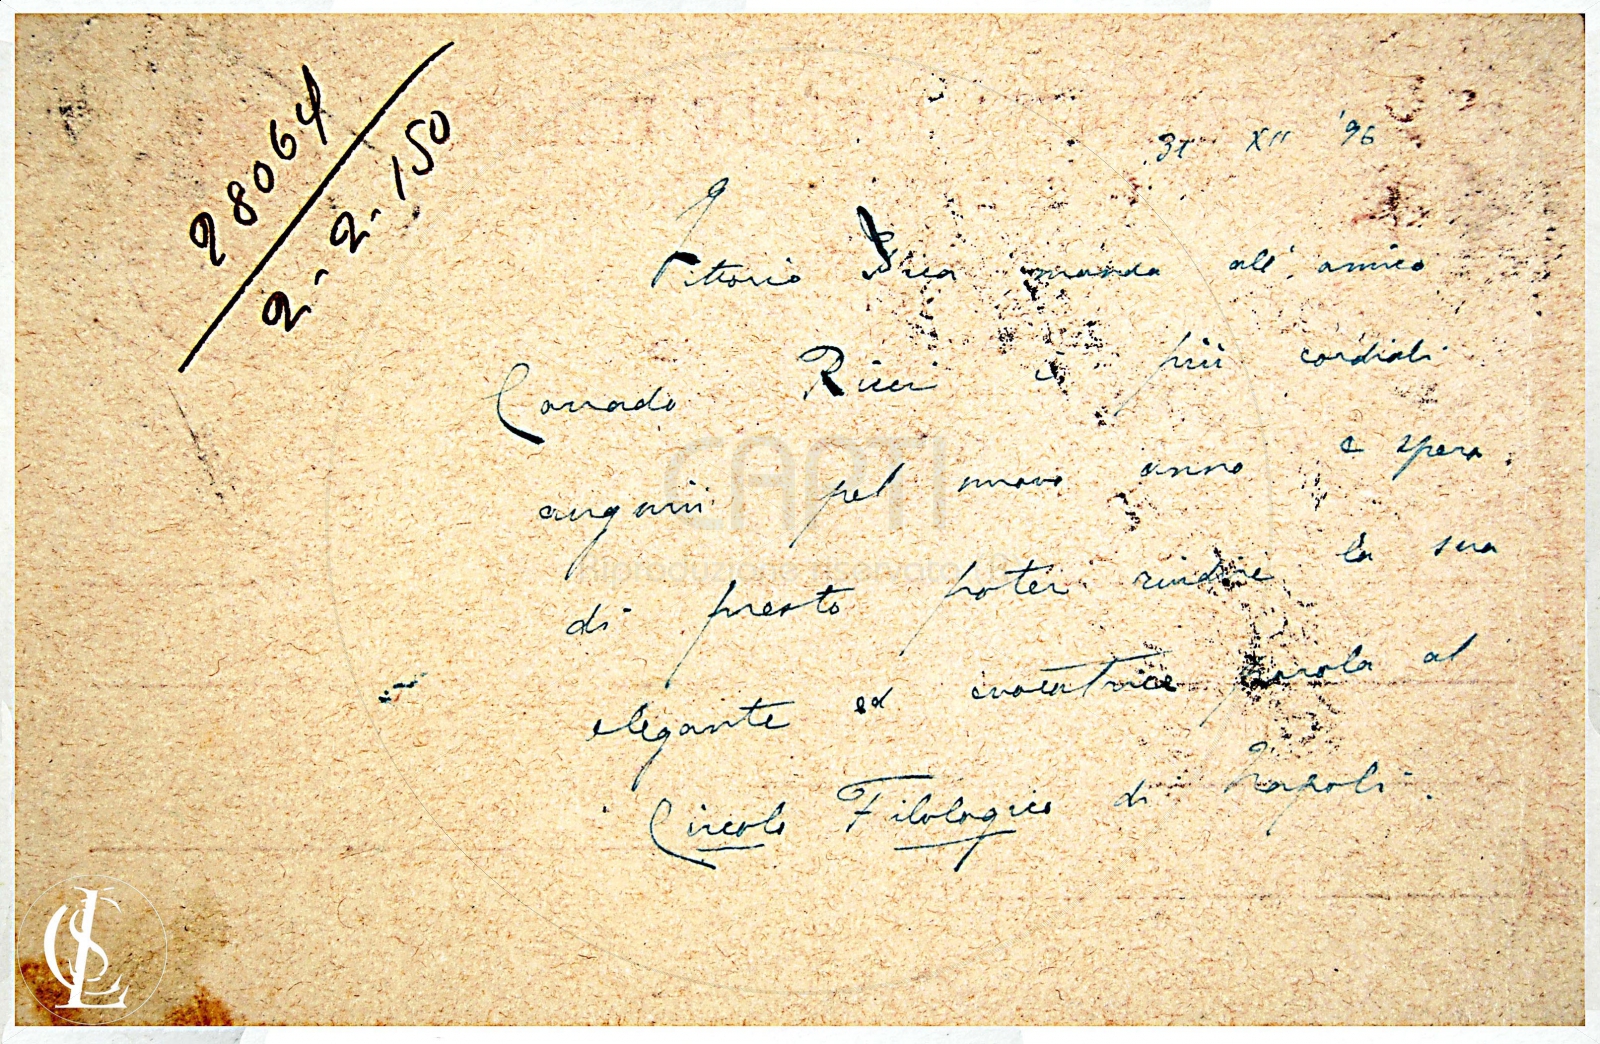 28064
2. 2. 150
31 XII '96
Vittorio Pica manda all'amico
Corrado Ricci i più cordiali
augurii pel nuovo anno e spera
di presto poter riudire la sua
elegante ed evocatrice parola al
Circolo Filologico di Napoli.
CAPTI